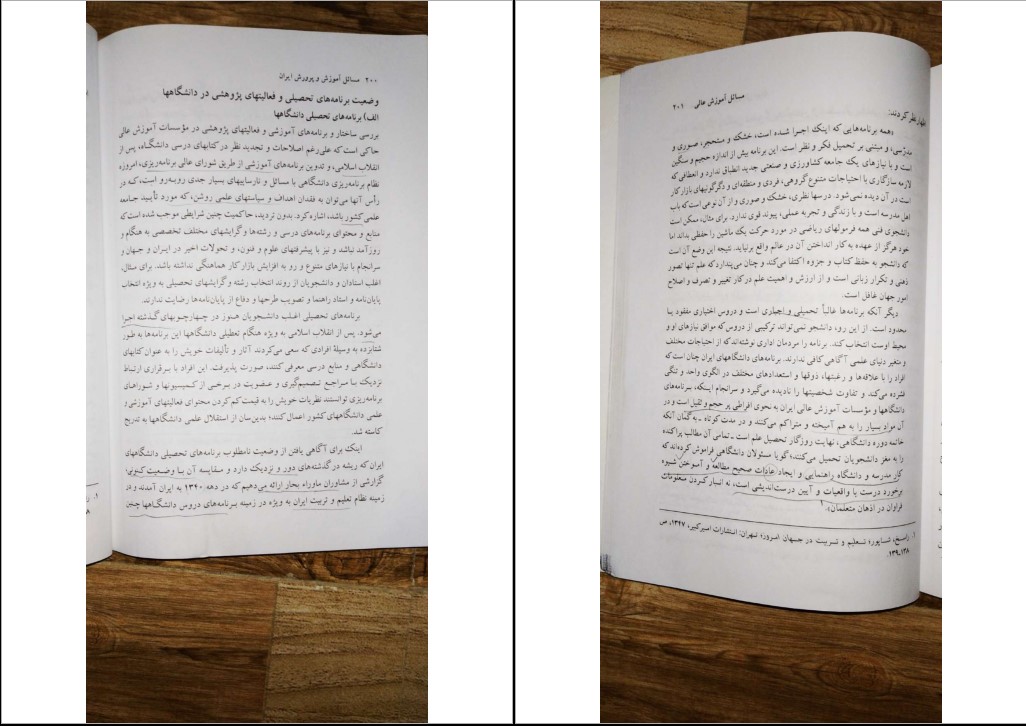 ۲۰۰ مسائل آموزش و پرورش ایران
وضعیت برنامه‌های تحصیلی و فعالیتهای پژوهشی در دانشگاهها
الف) برنامه‌های تحصیلی دانشگاهها
بررسی ساختار و برنامه‌های آموزشی و فعالیتهای پژوهشی در مؤسسات آموزش عالی
حاکی است که علی‌رغم اصلاحات و تجدید نظر در کتابهای درسی دانشگاه، پس از
انقلاب اسلامی، و تدوین برنامه‌های آموزشی از طریق شورای عالی برنامه‌ریزی، امروزه
نظام برنامه‌ریزی دانشگاهی با مسائل و نارساییهای بسیار جدی روبه‌رو است، که در
رأس آنها می‌توان به فقدان اهداف و سیاستهای علمی روشن، که مورد تأیید جامعه
علمی کشور باشد، اشاره کرد. بدون تردید، حاکمیت چنین شرایطی موجب شده است که
منابع و محتوای برنامه‌های درسی و رشته‌ها و گرایشهای مختلف تخصصی به هنگام و
روزآمد نباشد و نیز با پیشرفتهای علوم و فنون، و تحولات اخیر در ایران و جهان و
سرانجام با نیازهای متنوع و رو به افزایش بازار کار هماهنگی نداشته باشد. برای مثال،
اغلب استادان و دانشجویان از روند انتخاب رشته و گرایشهای تحصیلی به ویژه انتخاب
پایان‌نامه و استاد راهنما و تصویب طرحها و دفاع از پایان‌نامه‌ها رضایت ندارند.
برنامه‌های تحصیلی اغلب دانشجویان هنوز در چهارچوبهای گذشته اجرا
می‌شود. پس از انقلاب اسلامی به ویژه هنگام تعطیلی دانشگاهها این برنامه‌ها به طور
شتابزده به وسیلهٔ افرادی که سعی می‌کردند آثار و تألیفات خویش را به عنوان کتابهای
دانشگاهی و منابع درسی معرفی کنند، صورت پذیرفت. این افراد با برقراری ارتباط
نزدیک با مراجع تصمیم‌گیری و عضویت در برخی از کمیسیونها و شوراهای
برنامه‌ریزی توانستند نظریات خویش را به قیمت کم کردن محتوای فعالیتهای آموزشی و
علمی دانشگاههای کشور اعمال کنند؛ بدین‌سان از استقلال علمی دانشگاهها به تدریج
کاسته شد.
اینک برای آگاهی یافتن از وضعیت نامطلوب برنامه‌های تحصیلی دانشگاههای
ایران که ریشه در گذشته‌های دور و نزدیک دارد و مقایسه آن با وضعیت کنونی،
گزارشی از مشاوران ماوراء بحار ارائه می‌دهیم که در دهه ۱۳۴۰ به ایران آمدند و در
زمینه نظام تعلیم و تربیت ایران به ویژه در زمینه برنامه‌های دروس دانشگاهها چنین
مسائل آموزش عالی ۲۰۱
اظهارنظر کردند:
«همه برنامه‌هایی که اینک اجرا شده است، خشک و متحجر، صوری و
مدرّسی، و مبتنی بر تحمیل فکر و نظر است. این برنامه بیش از اندازه حجیم و سنگین
است و با نیازهای یک جامعه کشاورزی و صنعتی جدید انطباق ندارد و انعطافی که
لازمه سازگاری با احتیاجات متنوع گروهی، فردی و منطقه‌ای و دگرگونیهای بازار کار
است در آن دیده نمی‌شود. درسها نظری، خشک و صوری و از آن نوعی است که باب
اهل مدرسه است و با زندگی و تجربه عملی، پیوند قوی ندارد. برای مثال، ممکن است
دانشجوی فنی همه فرمولهای ریاضی در مورد حرکت یک ماشین را حفظی بداند اما
خود هرگز از عهده به کار انداختن آن در عالم واقع برنیاید. نتیجه این وضع آن است
که دانشجو به حفظ کتاب و جزوه اکتفا می‌کند و چنان می‌پندارد که علم تنها تصور
ذهنی و تکرار زبانی است و از ارزش و اهمیت علم در کار تغییر و تصرف و اصلاح
امور جهان غافل است.
دیگر آنکه برنامه‌ها غالباً تحمیلی و اجباری است و دروس اختیاری مفقود یا
محدود است. از این رو، دانشجو نمی‌تواند ترکیبی از دروس که موافق نیازهای او و
محیط اوست انتخاب کند. برنامه را مردمان اداری نوشته‌اند که از احتیاجات مختلف
و متغیر دنیای علمی آگاهی کافی ندارند. برنامه‌های دانشگاههای ایران چنان است که
افراد را با علاقه‌ها و رغبتها، ذوقها و استعدادهای مختلف در الگوی واحد و تنگی
فشرده می‌کند و تفاوت شخصیتها را نادیده می‌گیرد و سرانجام اینکه، برنامه‌های
دانشگاهها و مؤسسات آموزش عالی ایران به نحوی افراطی پر حجم و ثقیل است و در
آن مواد بسیار را به هم آمیخته و متراکم می‌کنند و در مدت کوتاه ـ به گمان آنکه
خاتمه دوره دانشگاهی، نهایت روزگار تحصیل علم است ـ تمامی آن مطالب پراکنده
را به مغز دانشجویان تحمیل می‌کنند؛ گویا مسئولان دانشگاهی فراموش کرده‌اند که
کار مدرسه و دانشگاه راهنمایی و ایجاد عادات صحیح مطالعه و آموختن شیوه
برخورد درست با واقعیات و آیین درست‌اندیشی است، نه انبار کردن معلومات
فراوان در اذهان متعلمان».۱
۱. راسخ، شاپور؛ تعلیم و تربیت در جهان امروز؛ تهران: انتشارات امیرکبیر، ۱۳۴۷، ص
۱۳۸ـ۱۳۹.